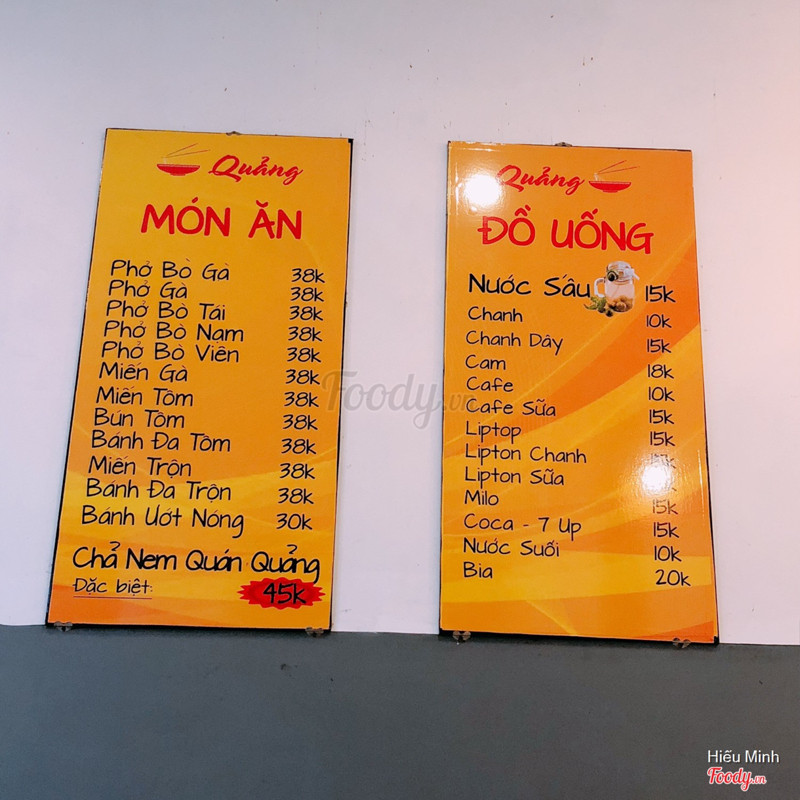 Quảng
MÓN ĂN
Phở Bò Gà 38k
Phở Gà 38k
Phở Bò Tái 38k
Phở Bò Nam 38k
Phở Bò Viên 38k
Miến Gà 38k
Miến Tôm 38k
Bún Tôm 38k
Bánh Đa Tôm 38k
Miến Trộn 38k
Bánh Đa Trộn 38k
Bánh Ướt Nóng 30k
Chả Nem Quán Quảng
Đặc biệt: 45k
Quảng
ĐỒ UỐNG
Nước Sấu 15k
Chanh 10k
Chanh Dây 15k
Cam 18k
Cafe 10k
Cafe Sữa 15k
Liptop 15k
Lipton Chanh
Lipton Sữa
Milo 15k
Coca - 7 Up 15k
Nước Suối 10k
Bia 20k
Foody.vn
Hiếu Minh
Foody.vn